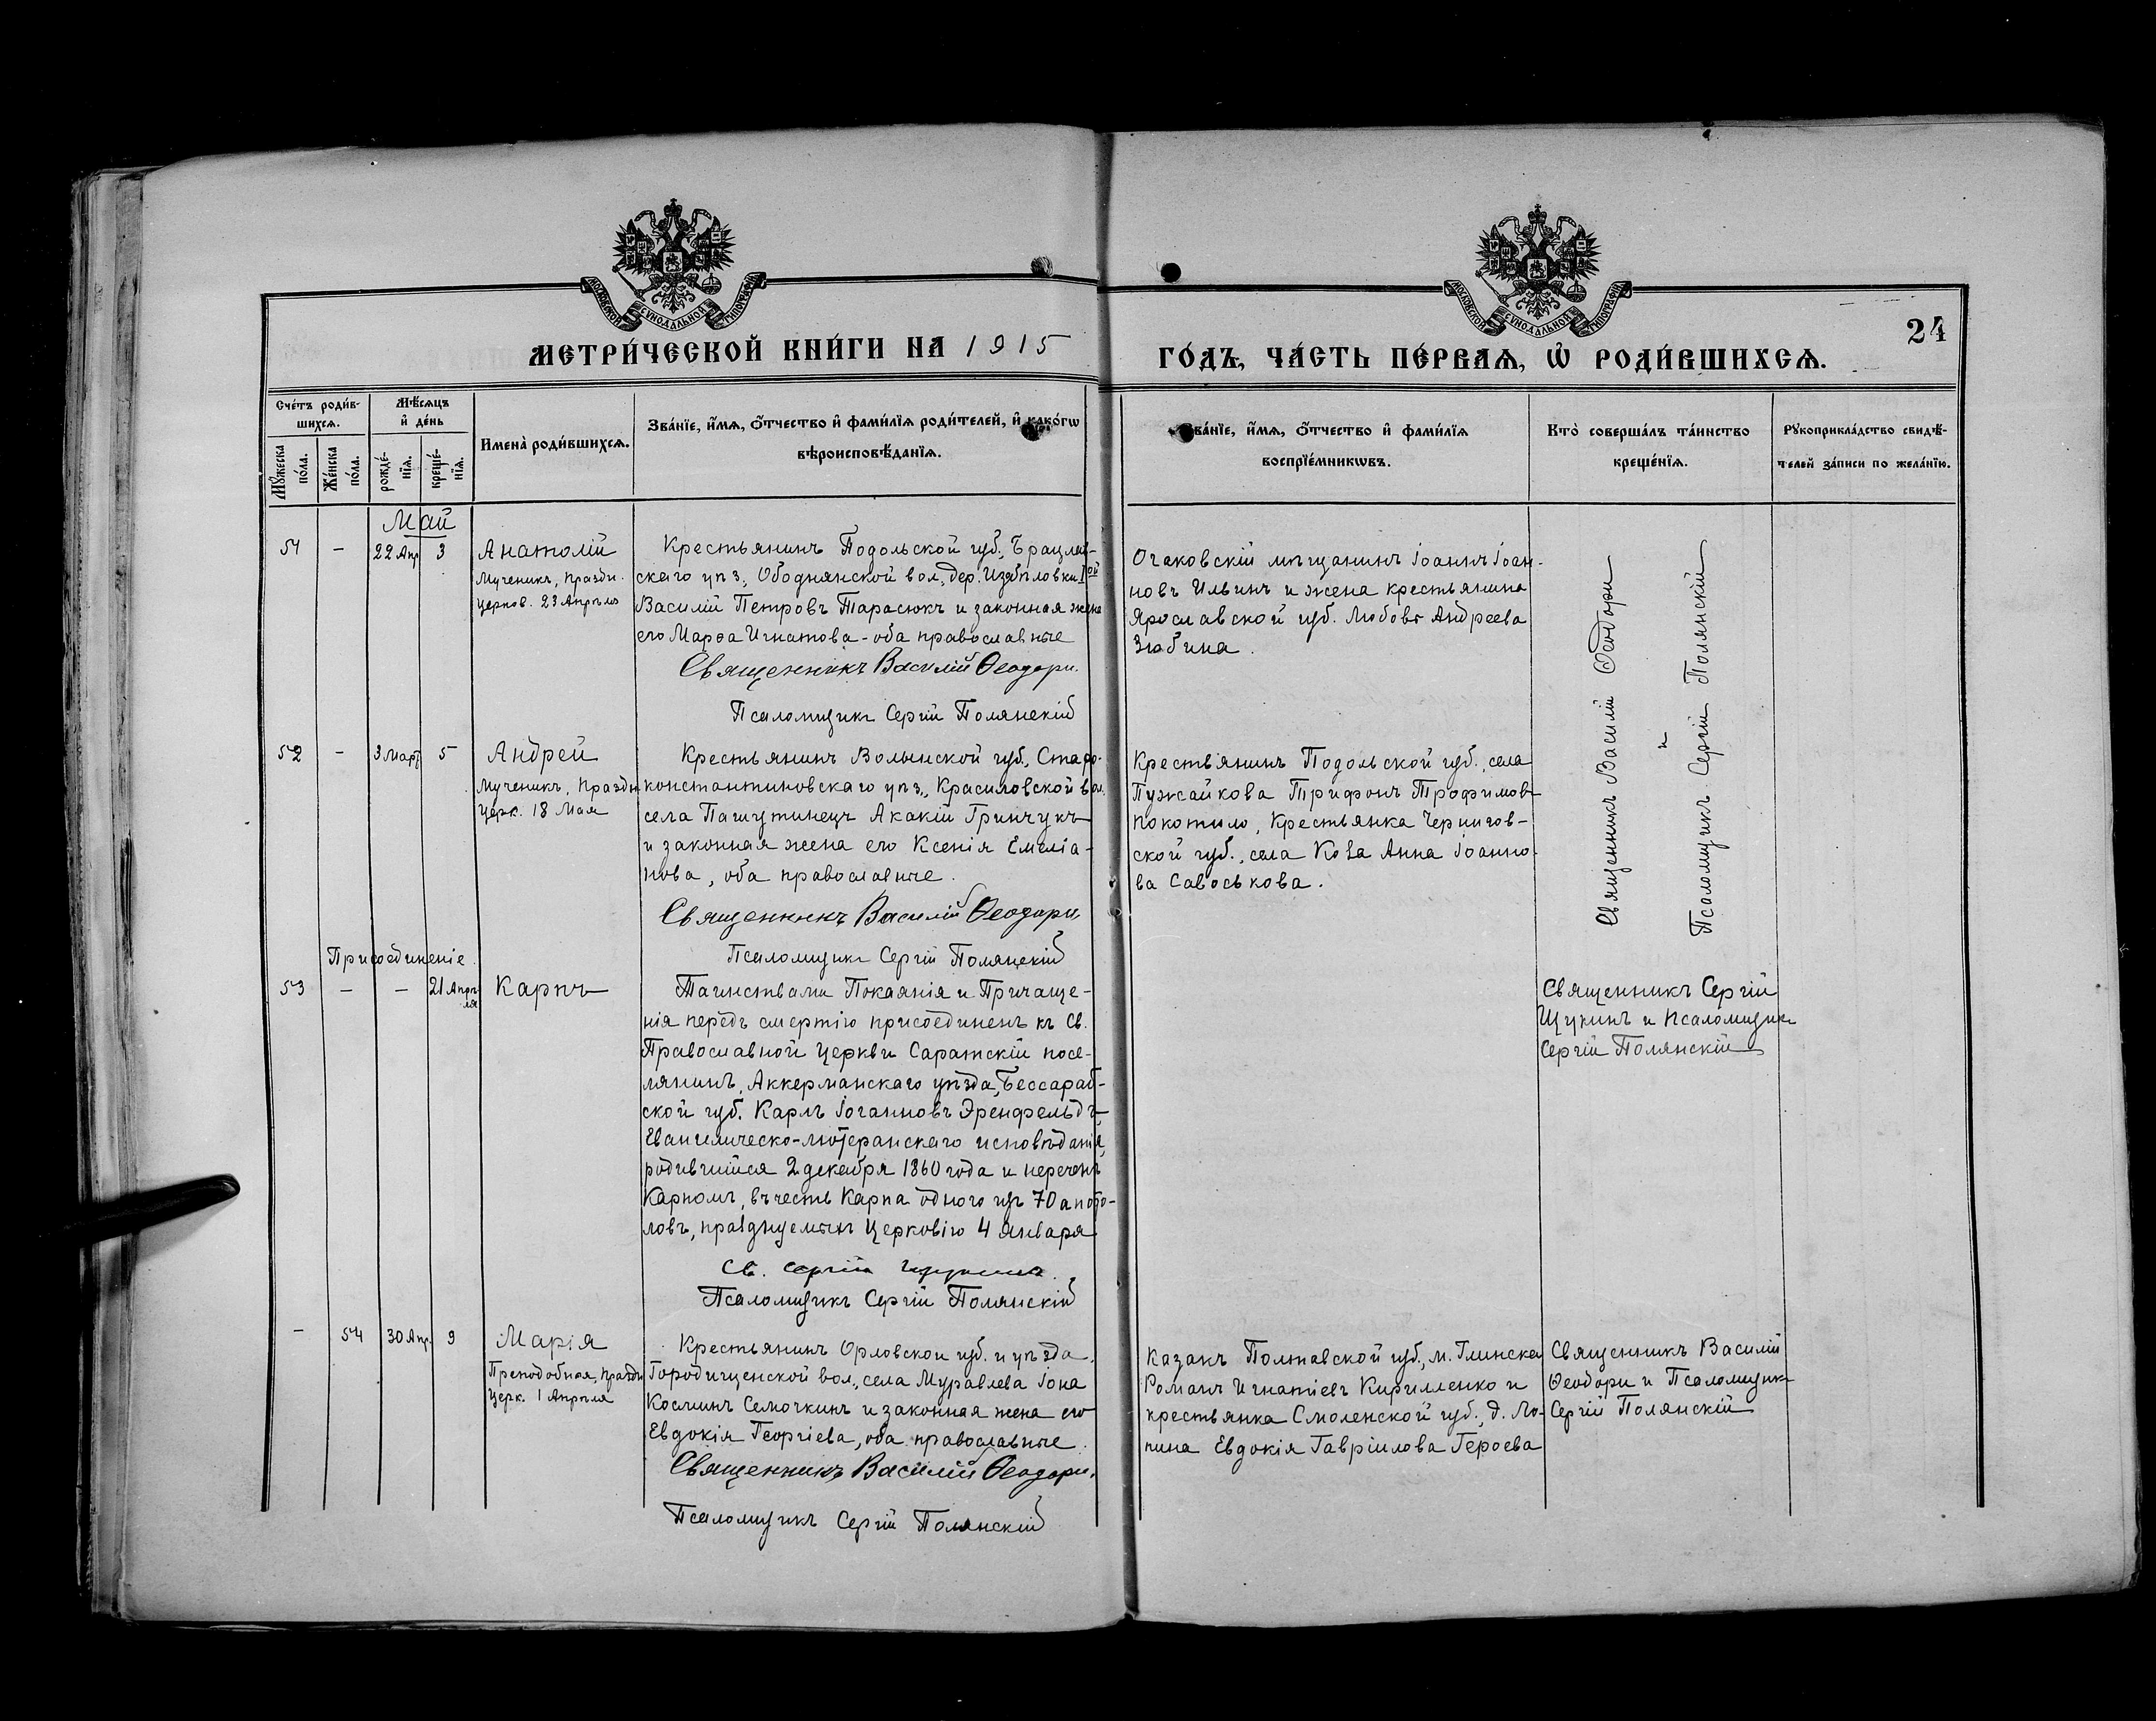 МОСКОВСКОЙ СѴНОДАЛЬНОЙ ТИПОГРАФІИ
МОСКОВСКОЙ СѴНОДАЛЬНОЙ ТИПОГРАФІИ
24
МЕТРИ́ЧЕСКОЙ КНИ́ГИ НА 1915
ГО́ДЪ, ЧА́СТЬ ПЕ́РВАѦ, Ѡ҆ РОДИ́ВШИХСѦ.
Сче́тъ роди́в-
шихсѧ.
Мѣ́сѧцъ
и҆ де́нь
Мꙋ́жеска
по́ла.
Же́нска
по́ла.
рожде́-
нїѧ.
креще́-
нїѧ.
Имена̀ роди́вшихсѧ.
Зва́нїе, и҆́мѧ, ѻ҆́тчество и҆ фами́лїѧ роди́телей, и҆ како́гѡ
вѣроисповѣ́данїѧ.
Зва́нїе, и҆́мѧ, ѻ҆́тчество и҆ фами́лїѧ
воспрїе́мникѡвъ.
Кто̀ соверша́лъ та́инство
креще́нїѧ.
Рꙋкоприкла́дство свидѣ́-
телей за́писи по жела́нїю.
Май
51 - 22 Апр 3 Анатолій
Мученикъ, праздн.
церков. 23 Апрѣля
Крестьянинъ Подольской губ., Брацлав-
скаго уѣз., Ободнянской вол., дер. Изябловки Iой
Василій Петровъ Тарасюкъ и законная жена
его Марѳа Игнатова - оба православные
Священникъ Василій Ѳеодори.
Псаломщикъ Сергій Полянскій
Очаковскій мѣщанинъ Іоаннъ Іоан-
новъ Ильинъ и жена крестьянина
Ярославской губ. Любовь Андреева
Зюбина.
Священникъ Василій Ѳеодори
и
Псаломщикъ Сергій Полянскій
52 - 3 Март 5 Андрей
Мученикъ, праздн.
церк. 18 Мая
Крестьянинъ Волынской губ., Старо-
константиновскаго уѣз., Красиловской вол.
села Пашутинецъ Акакій Гринчукъ
и законная жена его Ксенія Емеліа-
нова, оба православные.
Священникъ Василій Ѳеодори
Псаломщикъ Сергій Полянскій
Крестьянинъ Подольской губ., села
Пужайкова Трифонъ Трофимов
Покотило, Крестьянка Чернигов-
ской губ., села Анна Іоанно-
ва Савоськова.
Присоединеніе.
53 - - 21 Апрѣ-
ля
Карпъ
Таинствами Покаянія и Причаще-
нія передъ смертію присоединенъ къ Св.
Православной Церкви Саратскій посе-
лянинъ, Аккерманскаго уѣзда, Бессараб-
ской губ. Карлъ Іоганновъ Эренфельдъ,
Евангелическо-лютеранскаго исповѣданія,
родившійся 2 декабря 1860 года и нареченъ
Карпомъ, въ честь Карпа одного изъ 70 апосто-
ловъ, празднуемымъ Церковію 4 Января
Св. Сергій Щукинъ.
Псаломщикъ Сергій Полянскій
Священникъ Сергій
Щукинъ и Псаломщик
Сергій Полянскій
- 54 30 Апр. 9 Марія
Преподобная, праздн
церк. 1 Апрѣля
Крестьянинъ Орловской губ. и уѣзда,
Городищенской вол., села Муравлева Іона
Косминъ Семочкинъ и законная жена его
Евдокія Георгіева, оба православные.
Священникъ Василій Ѳеодори.
Псаломщикъ Сергій Полянскій
Казакъ Полтавской губ., м. Глинска
Романъ Игнатіевъ Кирилленко и
крестьянка Смоленской губ., д. Ло-
пина Евдокія Гавріилова Героева
Священникъ Василій
Ѳеодори и Псаломщик
Сергій Полянскій